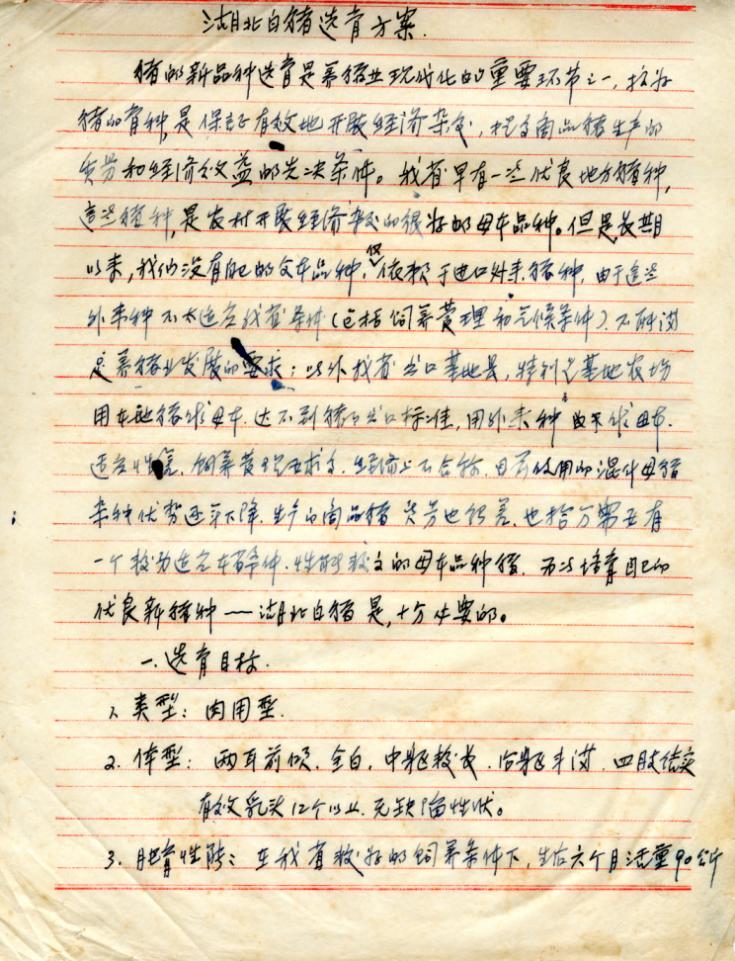 湖北白猪选育方案.
猪的新品种选育是养猪业现代化的重要环节之一,搞好
猪的育种,是保证有效地开展经济杂交,提高商品猪生产的
质量和经济效益的先决条件。我省早有一些优良地方猪种,
这些猪种,是农村开展经济杂交的很好的母本品种。但是,长期
以来,我们没有自己的父本品种,仅依赖于进口外来猪种,由于这些
外来种不太适应我省条件(包括饲养管理和气候条件),不能满
足养猪业发展的要求;此外我省出口基地县,特别是基地农场
用本地猪做母本,达不到猪的出口标准,用外来种做母本,
适应性差,饲养管理要求高,经济上不合算,目前使用的混什母猪
杂种优势逐年下降,生产的商品猪质量也很差,也迫切需要有
一个较为适应本省条件,性能较好的母本品种猪,所以培育自己的
优良新猪种——湖北白猪是,十分必要的。
一、选育目标.
1、类型:肉用型.
2、体型:两耳前倾,全白,中躯较长,后躯丰满,四肢结实
有效乳头12个以上,无缺陷性状。
3、肥育性能:在我省较好的饲养条件下,生后六个月活重90公斤